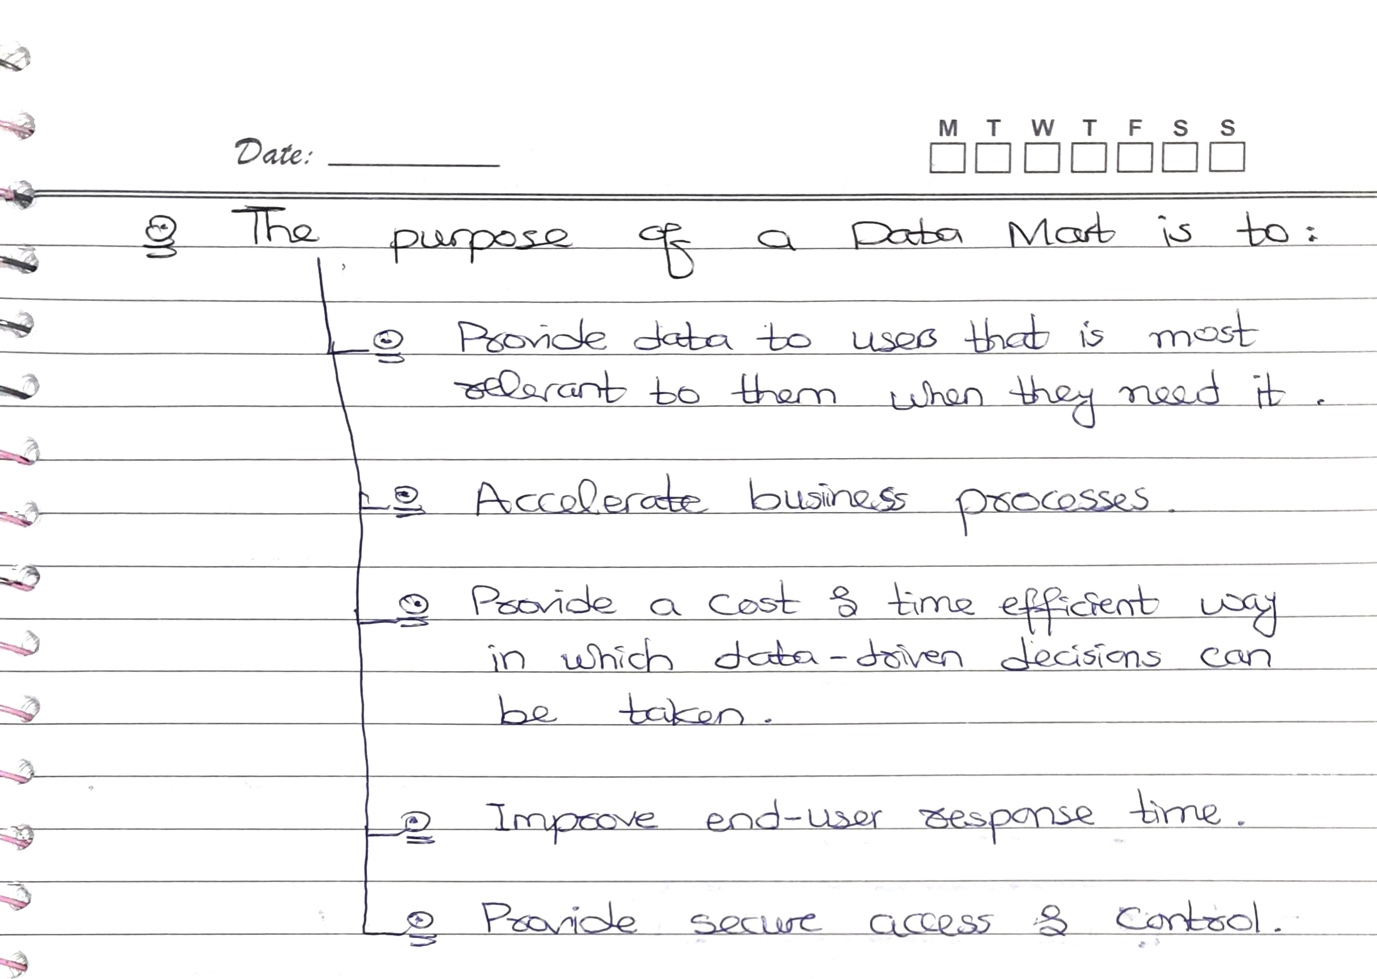 Date:
M T W T F S S
The purpose of a Data Mart is to:
Provide data to users that is most
relevant to them when they need it.
Accelerate business processes.
Provide a cost & time efficient way
in which data-driven decisions can
be taken.
Improve end-user response time.
Provide secure access & control.